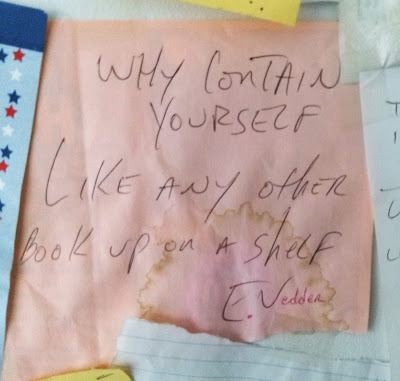 WHY CONTAIN
YOURSELF
LIKE ANY other
Book up on A shelf
E. Vedder